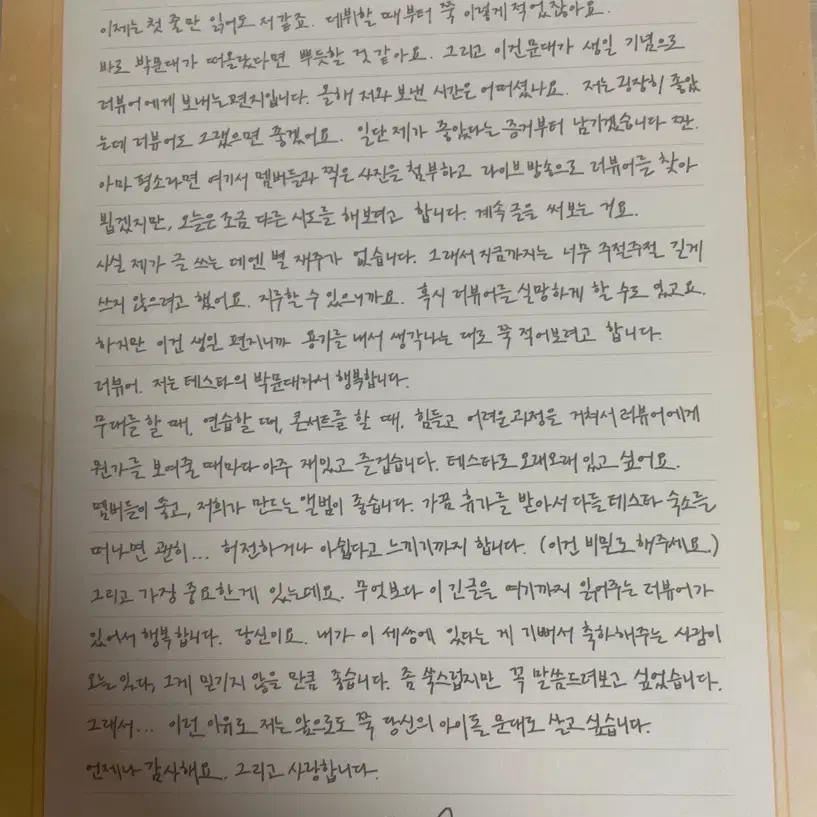 이제는 첫 줄만 읽어도 저 같죠. 데뷔할 때부터 쭉 이렇게 적었잖아요.
바로 박문대가 떠올랐다면 뿌듯할 것 같아요. 그리고 이건 문대가 생일 기념으로
러뷰어에게 보내는 편지입니다. 올해 저와 보낸 시간은 어떠셨나요. 저는 굉장히 좋았
는데 러뷰어도 그랬으면 좋겠어요. 일단 제가 좋았다는 증거부터 남기겠습니다 짠.
아마 평소라면 여기서 멤버들과 찍은 사진을 첨부하고 라이브 방송으로 러뷰어를 찾아
뵙겠지만, 오늘은 조금 다른 시도를 해보려고 합니다. 계속 글을 써 보는 거요.
사실 제가 글 쓰는 데엔 별 재주가 없습니다. 그래서 지금까지는 너무 주절주절 길게
쓰지 않으려고 했어요. 지루할 수 있으니까요. 혹시 러뷰어를 실망하게 할 수도 있고요.
하지만 이건 생일 편지니까 용기를 내서 생각나는 대로 쭉 적어보려고 합니다.
러뷰어. 저는 테스타의 박문대라서 행복합니다.
무대를 할 때, 연습할 때, 콘서트를 할 때, 힘들고 어려운 과정을 거쳐서 러뷰어에게
뭔가를 보여줄 때마다 아주 재밌고 즐겁습니다. 테스타로 오래오래 있고 싶어요.
멤버들이 좋고, 저희가 만드는 앨범이 좋습니다. 가끔 휴가를 받아서 다들 테스타 숙소를
떠나면 괜히... 허전하거나 아쉽다고 느끼기까지 합니다. (이건 비밀로 해주세요.)
그리고 가장 중요한 게 있는데요. 무엇보다 이 긴 글을 여기까지 읽어주는 러뷰어가
있어서 행복합니다. 당신이요. 내가 이 세상에 있다는 게 기뻐서 축하해주는 사람이
오늘 있다, 그게 믿기지 않을 만큼 좋습니다. 좀 쑥스럽지만 꼭 말씀드려보고 싶었습니다.
그래서... 이런 이유로 저는 앞으로도 쭉 당신의 아이돌 문대로 살고 싶습니다.
언제나 감사해요. 그리고 사랑합니다.